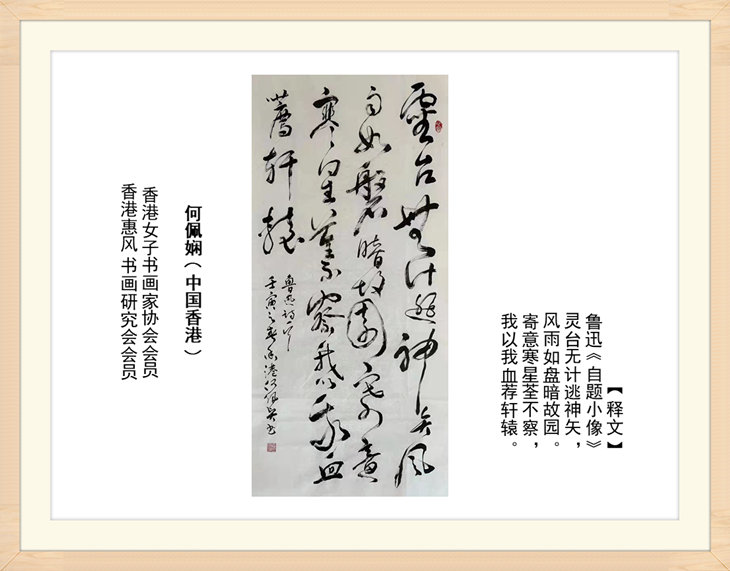 【释文】
鲁迅《自题小像》
灵台无计逃神矢，
风雨如盘暗故园。
寄意寒星荃不察，
我以我血荐轩辕。
靈台無计逃神矢風
雨如磐暗故園寄意
寒星荃不察我以我血
薦軒轅
魯迅诗一首
壬寅之春香港何佩娴书
何佩娴（中国香港）
香港女子书画家协会会员
香港惠风 书画研究会会员